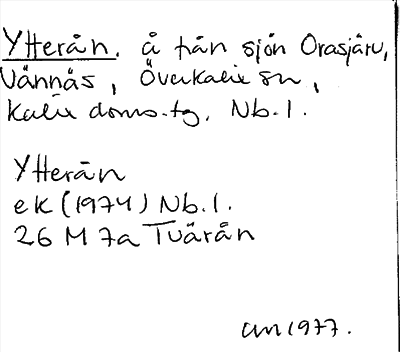 Ytterån. å från sjön Orasjärv,
Vännäs, Överkalix sn,
Kalix doms.tg. Nb.l.
Ytterån
ek (1974) Nb.l.
26 M 7a Tvärån
am 1977.